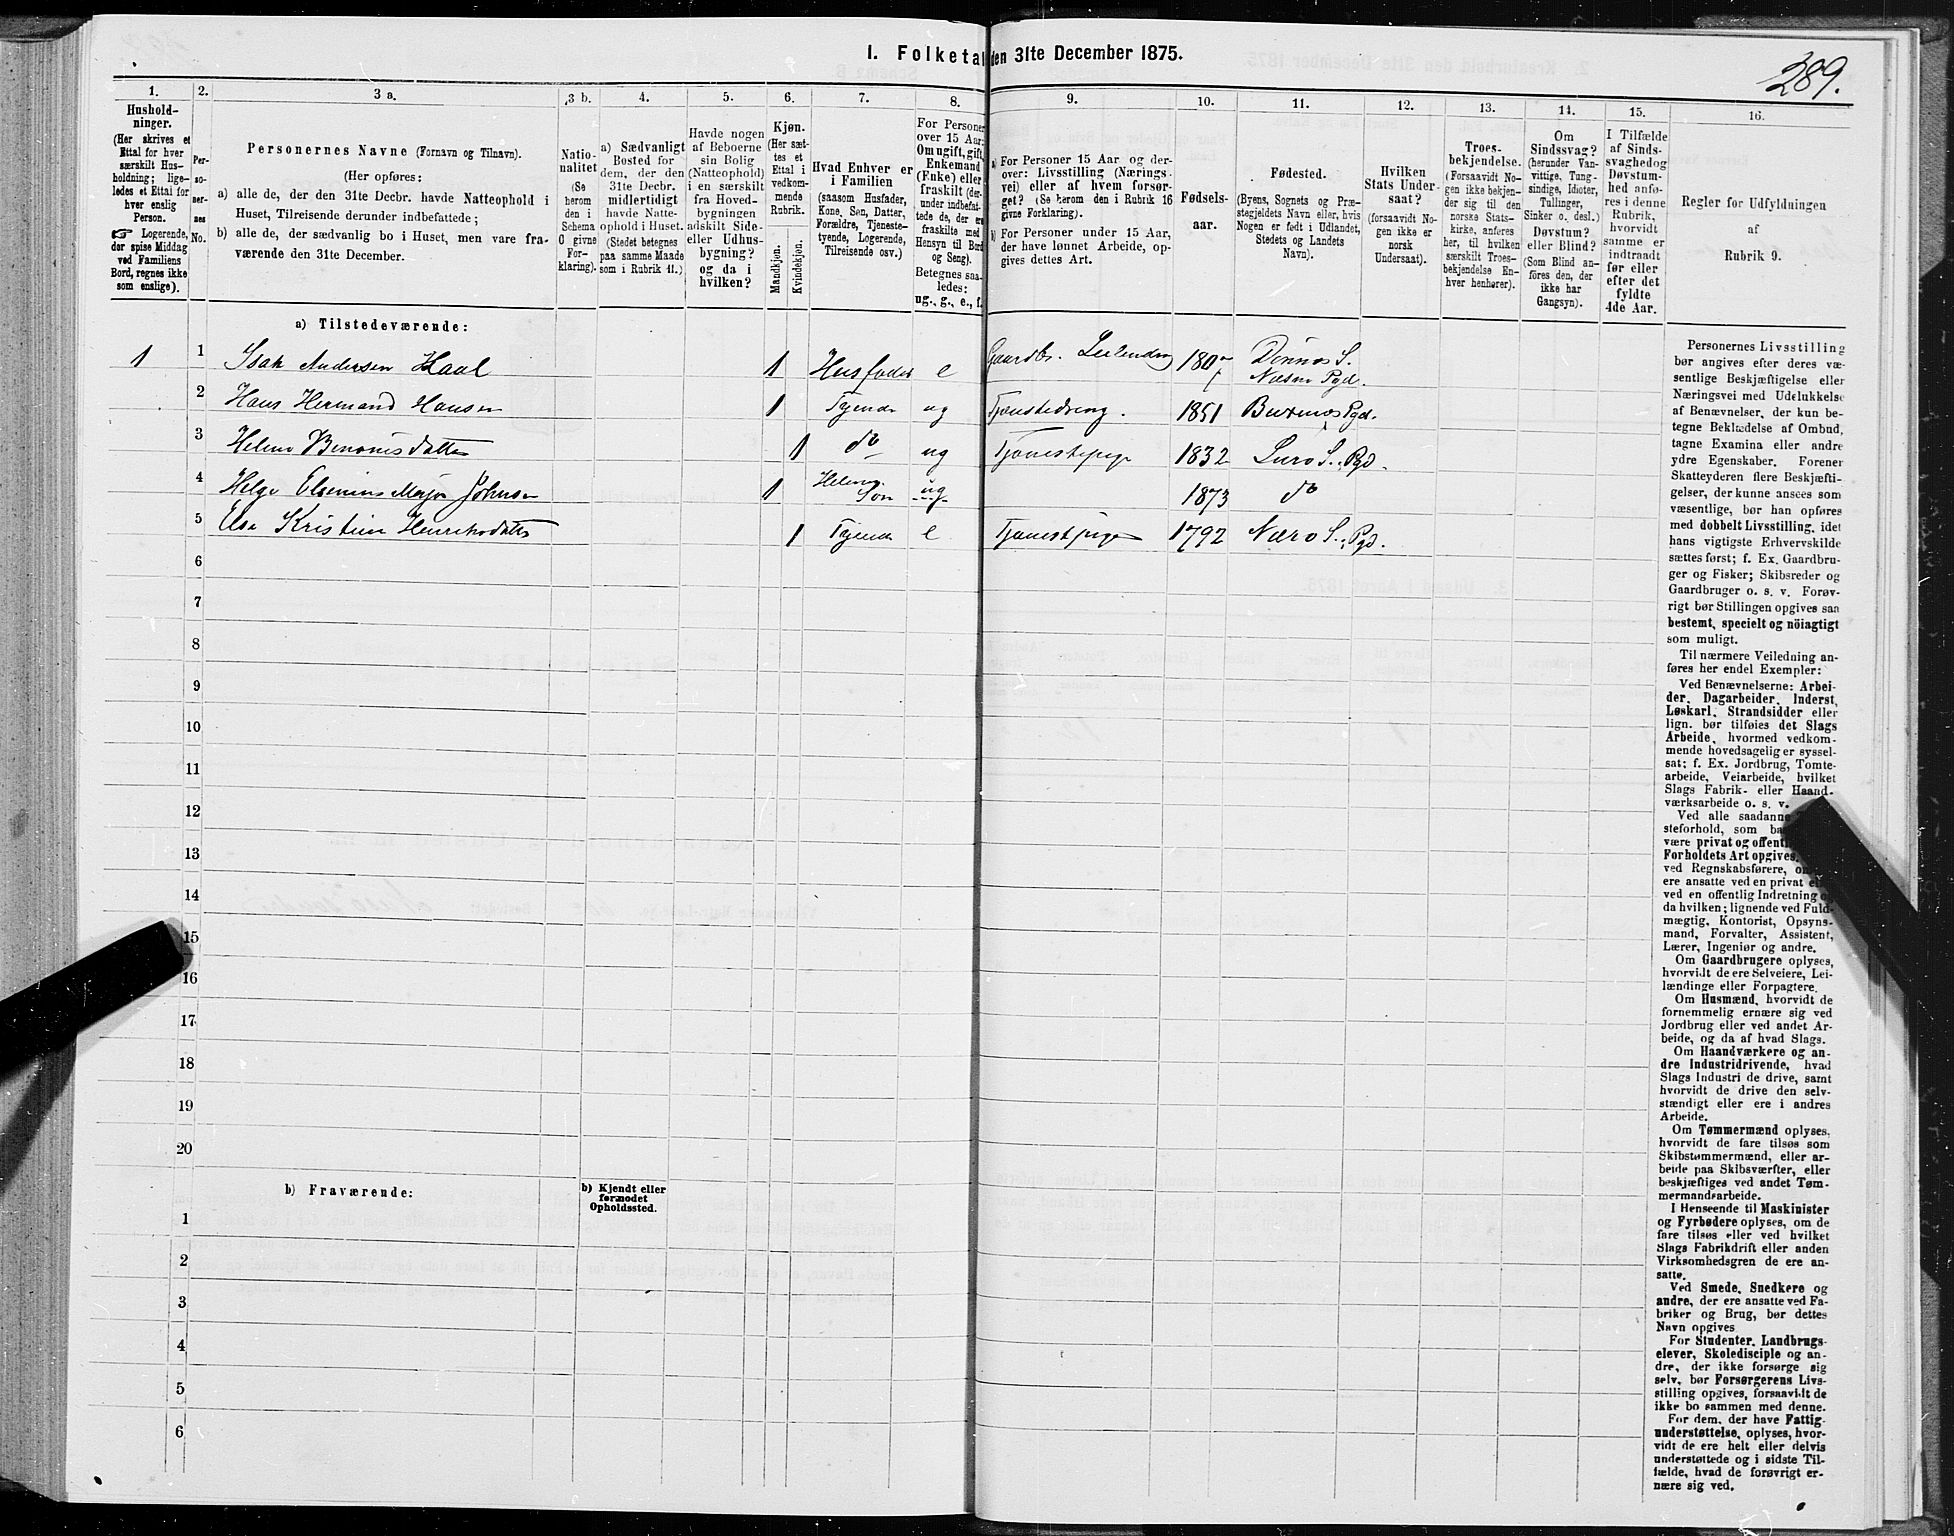 289.
1. Folketal den 31te December 1875.
1. 2. 3 a. 3 b. 4. 5. 6. 7. 8. 9. 10. 11. 12. 13. 14. 15. 16.
Hushold-
ninger.
(Her skrives et
Ettal for hver
særskilt Hus-
holdning; lige-
ledes et Ettal for
hver enslig
Person.
☞ Logerende,
der spise Middag
ved Familiens
Bord, regnes ikke
som enslige).
Per-
so-
ner-
nes
No.
Personernes Navne (Fornavn og Tilnavn).
(Her opføres:
a) alle de, der den 31te Decbr. havde Natteophold i
Huset, Tilreisende derunder indbefattede;
b) alle de, der sædvanlig bo i Huset, men vare fra-
værende den 31te December.
Natio-
nalitet
(Se
herom
den i
Schema
O givne
For-
klaring).
a) Sædvanligt
Bosted for
dem, der den
31te Decbr.
midlertidigt
havde Natte-
ophold i Huset.
(Stedet betegnes
paa samme Maade
som i Rubrik 11.)
Havde nogen
af Beboerne
sin Bolig
(Natteophold)
i en særskilt
fra Hoved-
bygningen
adskilt Side-
eller Udhus-
bygning?
og da i
hvilken?
Kjøn.
(Her sæt-
tes et
Ettal i
vedkom-
mende
Rubrik.
Mandkjøn.
Kvindekjøn.
Hvad Enhver er
i Familien
(saasom Husfader,
Kone, Søn, Datter,
Forældre, Tjeneste-
tyende, Logerende,
Tilreisende osv.)
For Personer
over 15 Aar:
Om ugift, gift,
Enkemand
(Enke) eller
fraskilt (der-
under indbefat-
tede de, der ere
fraskilte med
Hensyn til Bord
og Seng).
Betegnes saa-
ledes:
ug., g., e., f.
a) For Personer 15 Aar og der-
over: Livsstilling (Nærings-
vei) eller af hvem forsør-
get? (Se herom den i Rubrik 16
givne Forklaring).
b) For Personer under 15 Aar,
der have lønnet Arbeide, op-
gives dettes Art.
Fødsels-
aar.
Fødested.
(Byens, Sognets og Præ-
stegjeldets Navn eller, hvis
Nogen er født i Udlandet,
Stedets og Landets
Navn).
Hvilken
Stats Under-
saat?
(forsaavidt No-
gen ikke er
norsk
Undersaat).
Troes-
bekjendelse.
(Forsaavidt No-
gen ikke bekjen-
der sig til den
norske Stats-
kirke, anføres
her, til hvilken
særskilt Troes-
bekjendelse En-
hver henhører).
Om
Sindssvag?
(herunder Van-
vittige, Tung-
sindige, Idioter,
Tullinger,
Sinker o. desl.)
Døvstum?
eller Blind?
(Som Blind an-
føres den, der
ikke har
Gangsyn).
I Tilfælde
af Sinds-
svaghed og
Døvstum-
hed anfø-
res i denne
Rubrik,
hvorvidt
samme er
indtraadt
før eller
efter det
fyldte
4de Aar.
Regler for Udfyldningen
af
Rubrik 9.
a) Tilstedeværende:
1 1 Isak Andersen Haal 1 Husfader e Gaardbr. Leilending 1807 Dønnes S.
Næsne Pgd.
2 Hans Hermand Hansen 1 Tyende ug Tjenestedreng. 1851 Buxnæs Pgd.
3 Helene Benonisdatter 1 do ug Tjenestepige 1832 Lurø S., Pgd.
4 Helge Elsenius Johnsen 1 Helenes
Søn ug 1873 do
5 Else Kristine Henriksdatter 1 Tyende e Tjenestepige 1792 Nærø S., Pgd.
6
7
8
9
10
11
12
13
14
15
16
17
18
19
20
b) Fraværende:
b) Kjendt eller
formodet
Opholdssted.
1
2
3
4
5
6
Personernes Livsstilling
bør angives efter deres væ-
sentlige Beskjæftigelse eller
Næringsvei med Udelukkelse
af Benævnelser, der kun be-
tegne Beklædelse af Ombud,
tagne Examina eller andre
ydre Egenskaber. Forener
Skatteyderen flere Beskjæfti-
gelser, der kunne ansees som
væsentlige, bør han opføres
med dobbelt Livsstilling, idet
hans vigtigste Erhvervskilde
sættes først; f. Ex. Gaardbru-
ger og Fisker; Skibsreder og
Gaardbruger o. s. v. Forøv-
rigt bør Stillingen opgives saa
bestemt, specielt og nöiagtigt
som muligt.
Til nærmere Veiledning an-
føres her endel Exempler:
Ved Benævnelserne: Arbei-
der, Dagarbeider, Inderst,
Løskarl, Strandsidder eller
lign. bør tilføies det Slags
Arbeide, hvormed vedkom-
mende hovedsagelig er syssel-
sat; f. Ex. Jordbrug, Tomte-
arbeide, Veiarbeide, hvilket
Slags Fabrik- eller Haand-
værksarbeide o. s. v.
Ved alle saadanne
steforhold, som
være privat og
Forholdets Art opgives.
ved Regnskabsførere,
ere ansatte ved en privat
ved en offentlig Indretning
da hvilken; lignende ved Fuld-
mægtig, Kontorist, Opsyns-
mand, Forvalter, Assistent,
Lærer, Ingeniør og andre.
Om Gaardbrugere oplyses,
hvorvidt de ere Selveiere, Lei-
lændinge eller Forpagtere.
Om Husmænd, hvorvidt de
fornemmelig ernære sig ved
Jordbrug eller ved andet Ar-
beide, og da af hvad Slags.
Om Haandværkere og an-
dre Industridrivende, hvad
Slags Industri de drive, samt
hvorvidt de drive den selv-
stændigt eller ere i andres
Arbeide.
Om Tømmermænd oplyses,
hvorvidt de fare tilsøs som
Skibstømmermænd, eller ar-
beide paa Skibsværfter, eller
beskjæftiges ved andet Tøm-
mermandsarbeide.
I Henseende til Maskinister
og Fyrbødere oplyses, om de
fare tilsøs eller ved hvilket
Slags Fabrikdrift eller anden
Virksomhedsgren de ere an-
satte.
Ved Smede, Snedkere og
andre, der ere ansatte ved Fa-
briker og Brug, bør dettes
Navn opgives
For Studenter, Landbrugs-
elever, Skoledisciple og an-
dre, der ikke forsørge sig
selv, bør Forsørgerens Livs-
stilling opgives, forsaavidt de
ikke bo sammen med denne.
For dem, der have Fattig-
understøttelse, oplyses, hvor-
vidt de ere helt eller delvis
understøttede og i sidste Til-
fælde, hvad de forøvrigt er-
nære sig ved.